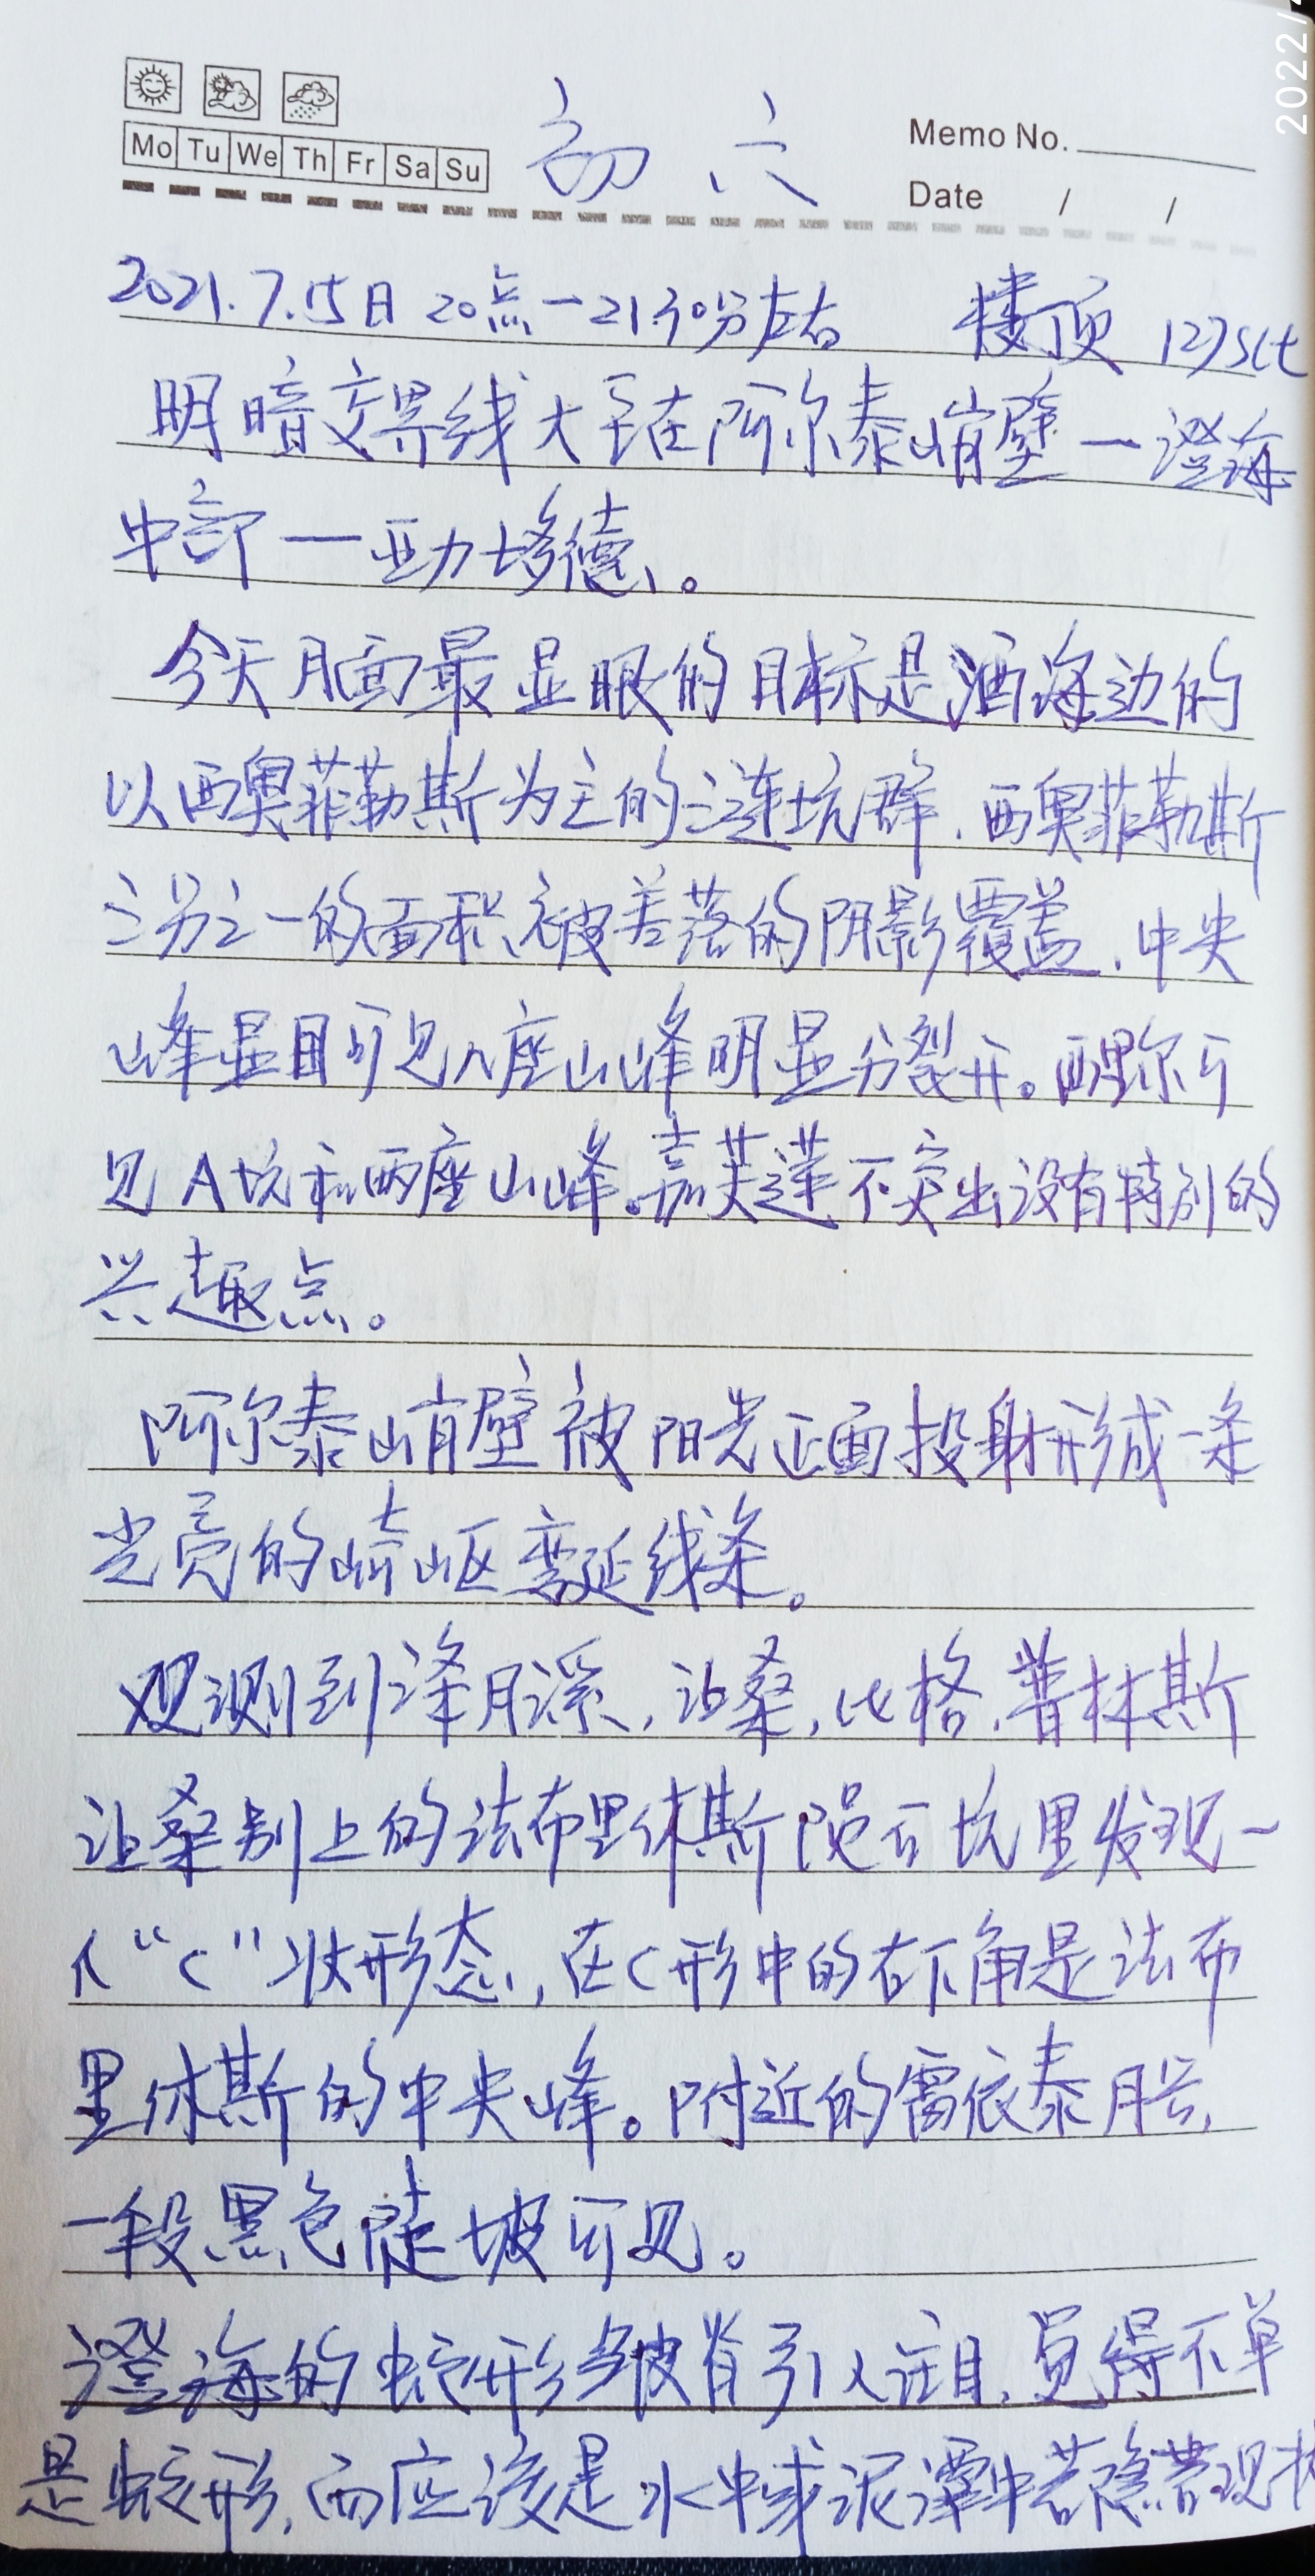 2022/
Mo Tu We Th Fr Sa Su
初六
Memo No.
Date / /
2021.7.15日 20点—21.30分左右 楼顶 127sct
明暗交界线大致在阿尔泰峭壁—澄海
中部—亚力士多德。
今天月面最显眼的目标是酒海边的
以西奥菲勒斯为主的三连坑群.西奥菲勒斯
三分之一的面积被差落的阴影覆盖.中央
峰显目可见八座山峰明显分裂开。西里尔可
见A坑和两座山峰。嘉芙莲不突出没有特别的
兴趣点。
阿尔泰峭壁被阳光正面投射形成一条
光亮的崎岖弯延线条。
观测到泽月溪,让桑,比格.普林斯
让桑别上的法布里休斯陨石坑里发现一
个“C”状形态,在C形中的右下角是法布
里休斯的中央峰。附近的雷依泰月谷,
一段黑色陡坡可见。
澄海的蛇形皱脊引人注目.觉得不单
是蛇形,而应该是水中或泥潭中若隐若现